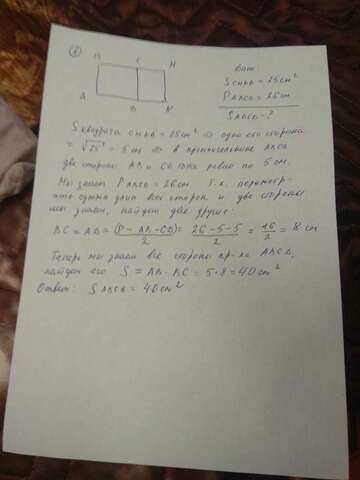 ①
B C H
A D N
Дано:
S CHND = 25 cm²
P ABCD = 26 cm
S ABCD - ?
S квадрата CHND = 25 cm² ⇒ одна его сторона
= √25 = 5 cm ⇒ в прямоугольнике ABCD
две стороны AB и CD тоже равны по 5 cm.
Мы знаем P ABCD = 26 cm Т.к. периметр-
это сумма длин всех сторон и две стороны
мы знаем, найдем две другие:
BC = AD = (P - AB - CD)/2 = 26-5-5/2 = 16/2 = 8 cm
Теперь мы знаем все стороны пр-ка ABCD,
найдем его S = AB · BC = 5·8 = 40 cm²
Ответ: S ABCD = 40 cm²